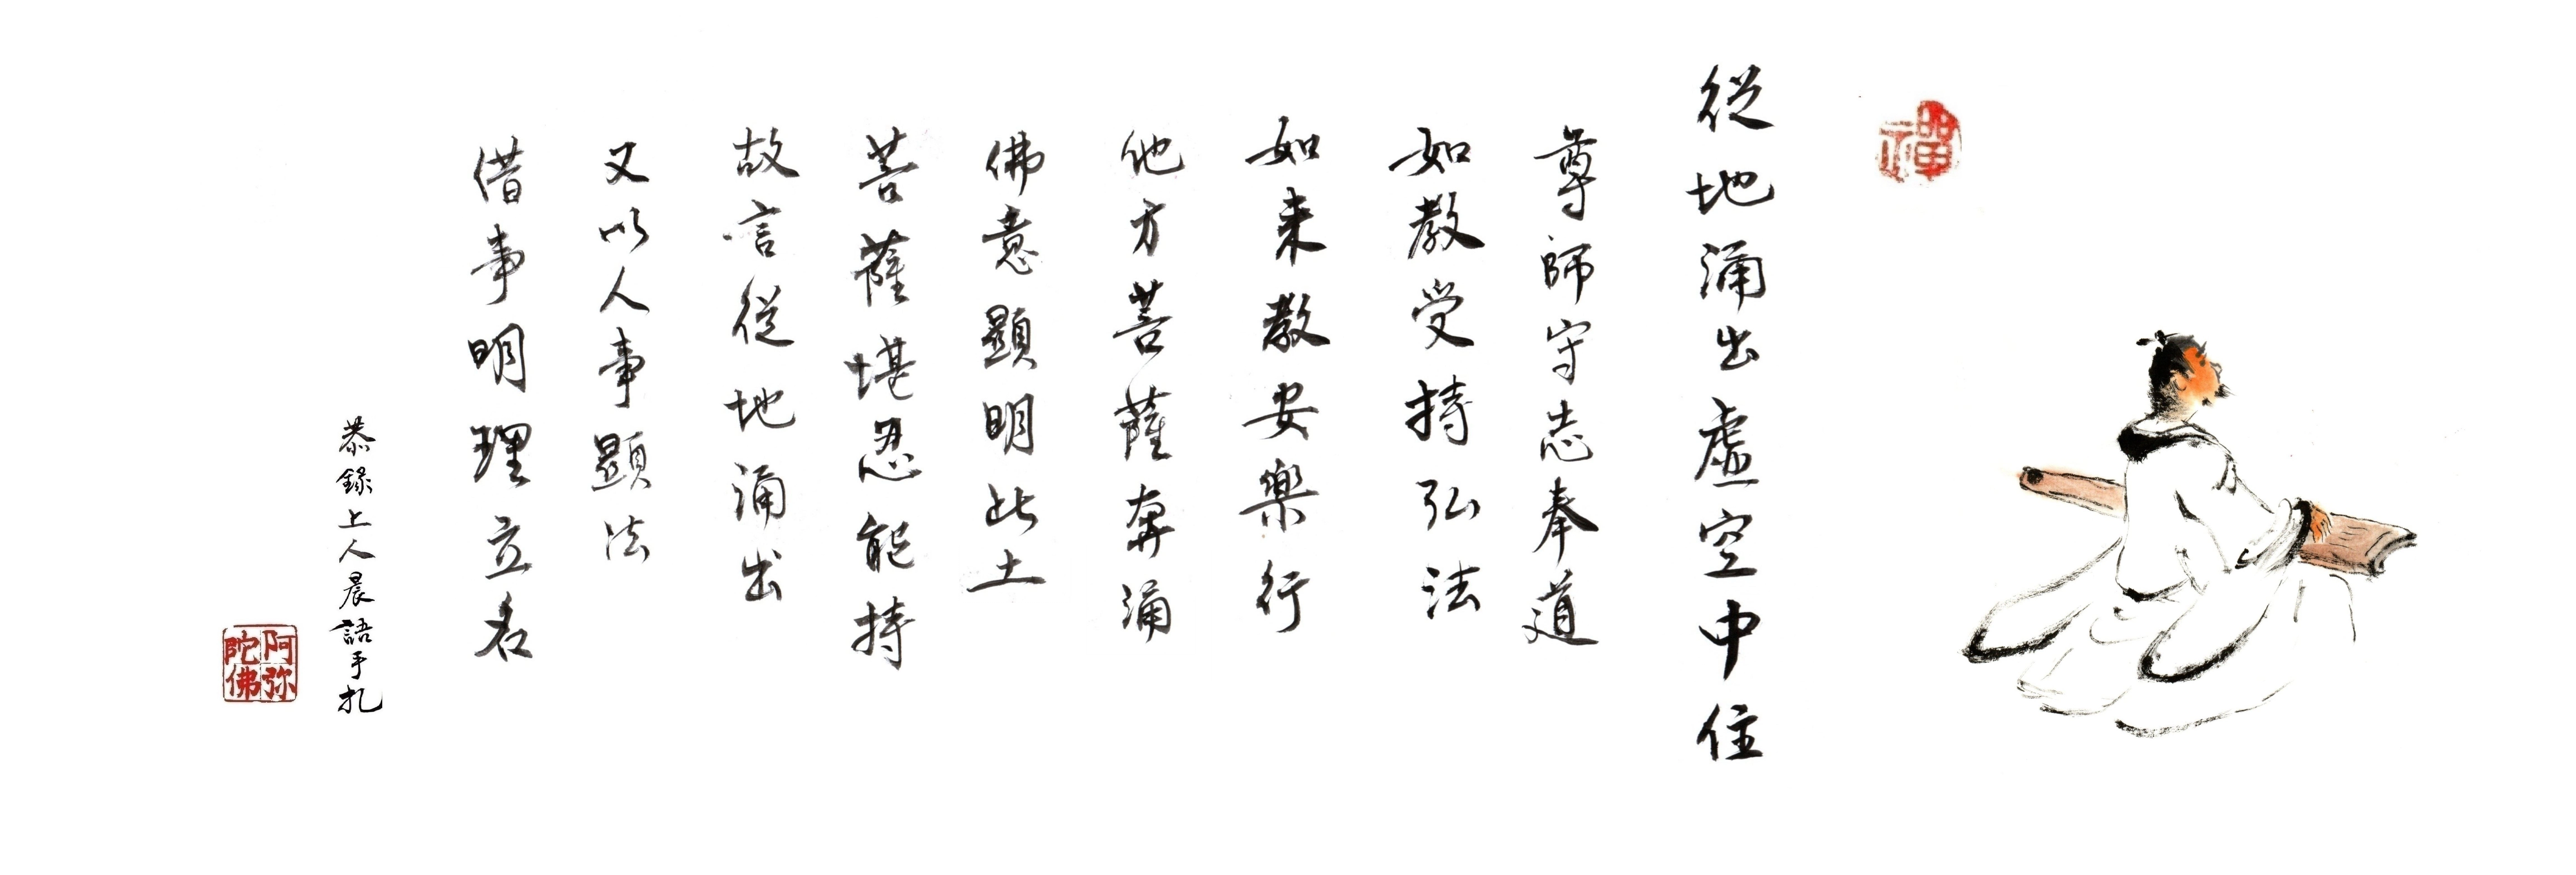 禪
從地涌出虛空中住
尊師守志奉道
如教受持弘法
如来教安樂行
他方菩薩奔涌
佛意顯明此土
菩薩堪忍能持
故言從地涌出
又以人事顯法
借事明理立名
恭錄上人晨語手扎
阿弥陀佛